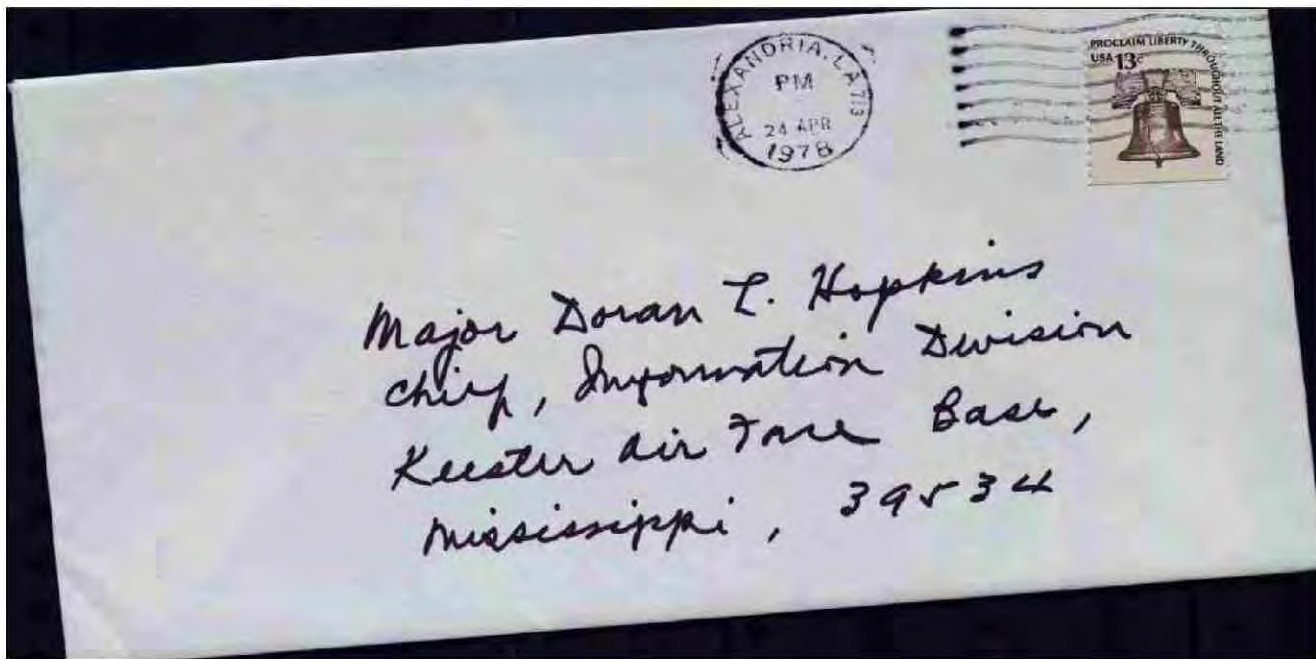 ALEXANDRIA, LA 713
PM
24 APR
1978
PROCLAIM LIBERTY THROUGHOUT ALL THE LAND
USA 13c
Major Doran L. Hopkins
Chief, Information Division
Keester Air Force Base,
Mississippi, 39534